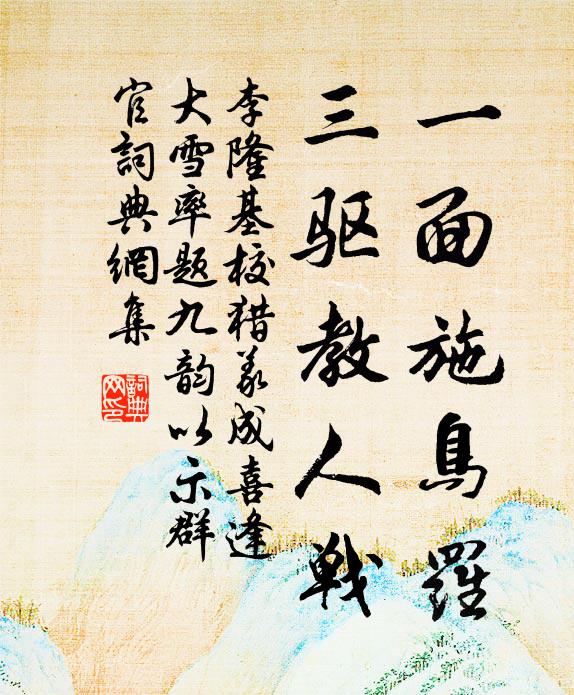 一面施鳥羅
三驱教人戰
李隆基校猎义成喜逢
大雪率题九韵以示群
官詞典網集
詞典
网印